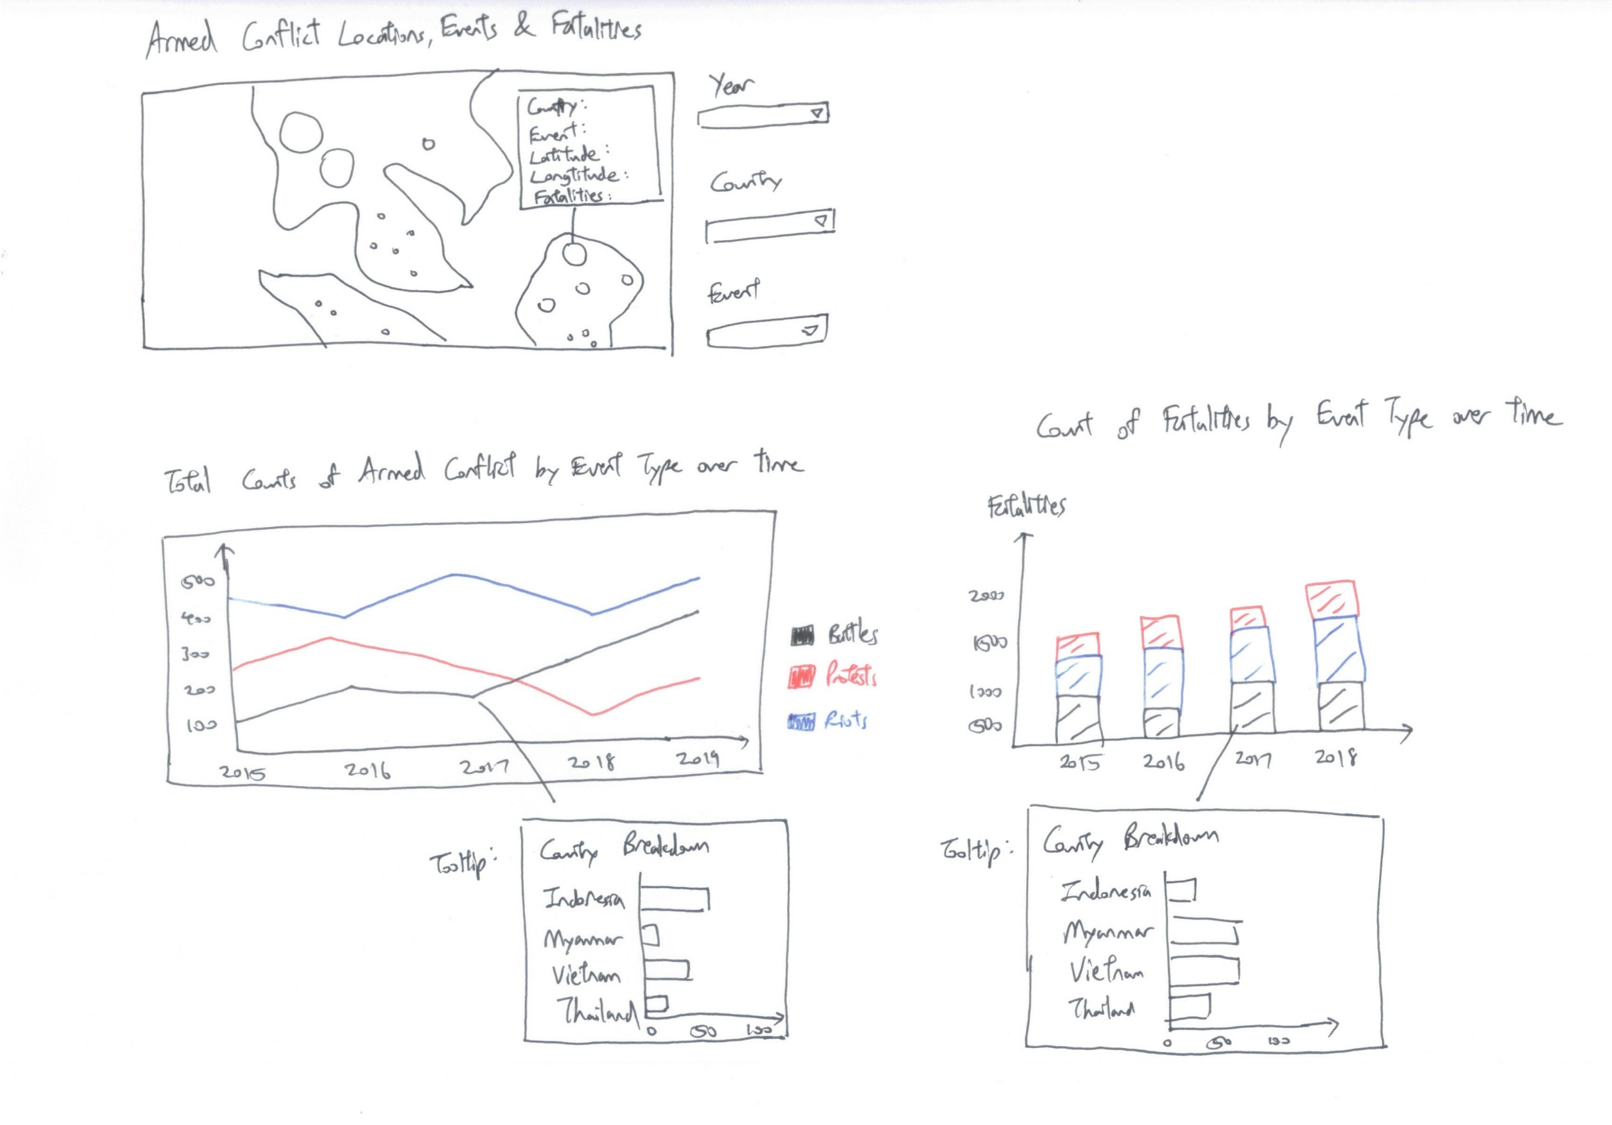 Armed Conflict Locations, Events & Fatalities
Country:
Event:
Latitude:
Longtitude:
Fatalities:
Year
Country
Event
Total Counts of Armed Conflict by Event Type over time
500
400
300
200
100
2015 2016 2017 2018 2019
Battles
Protests
Riots
Tooltip:
Country Breakdown
Indonesia
Myanmar
Vietnam
Thailand
0 50 100
Count of Fatalities by Event Type over time
Fatalities
2000
1500
1000
500
2015 2016 2017 2018
Tooltip:
Country Breakdown
Indonesia
Myanmar
Vietnam
Thailand
0 50 100